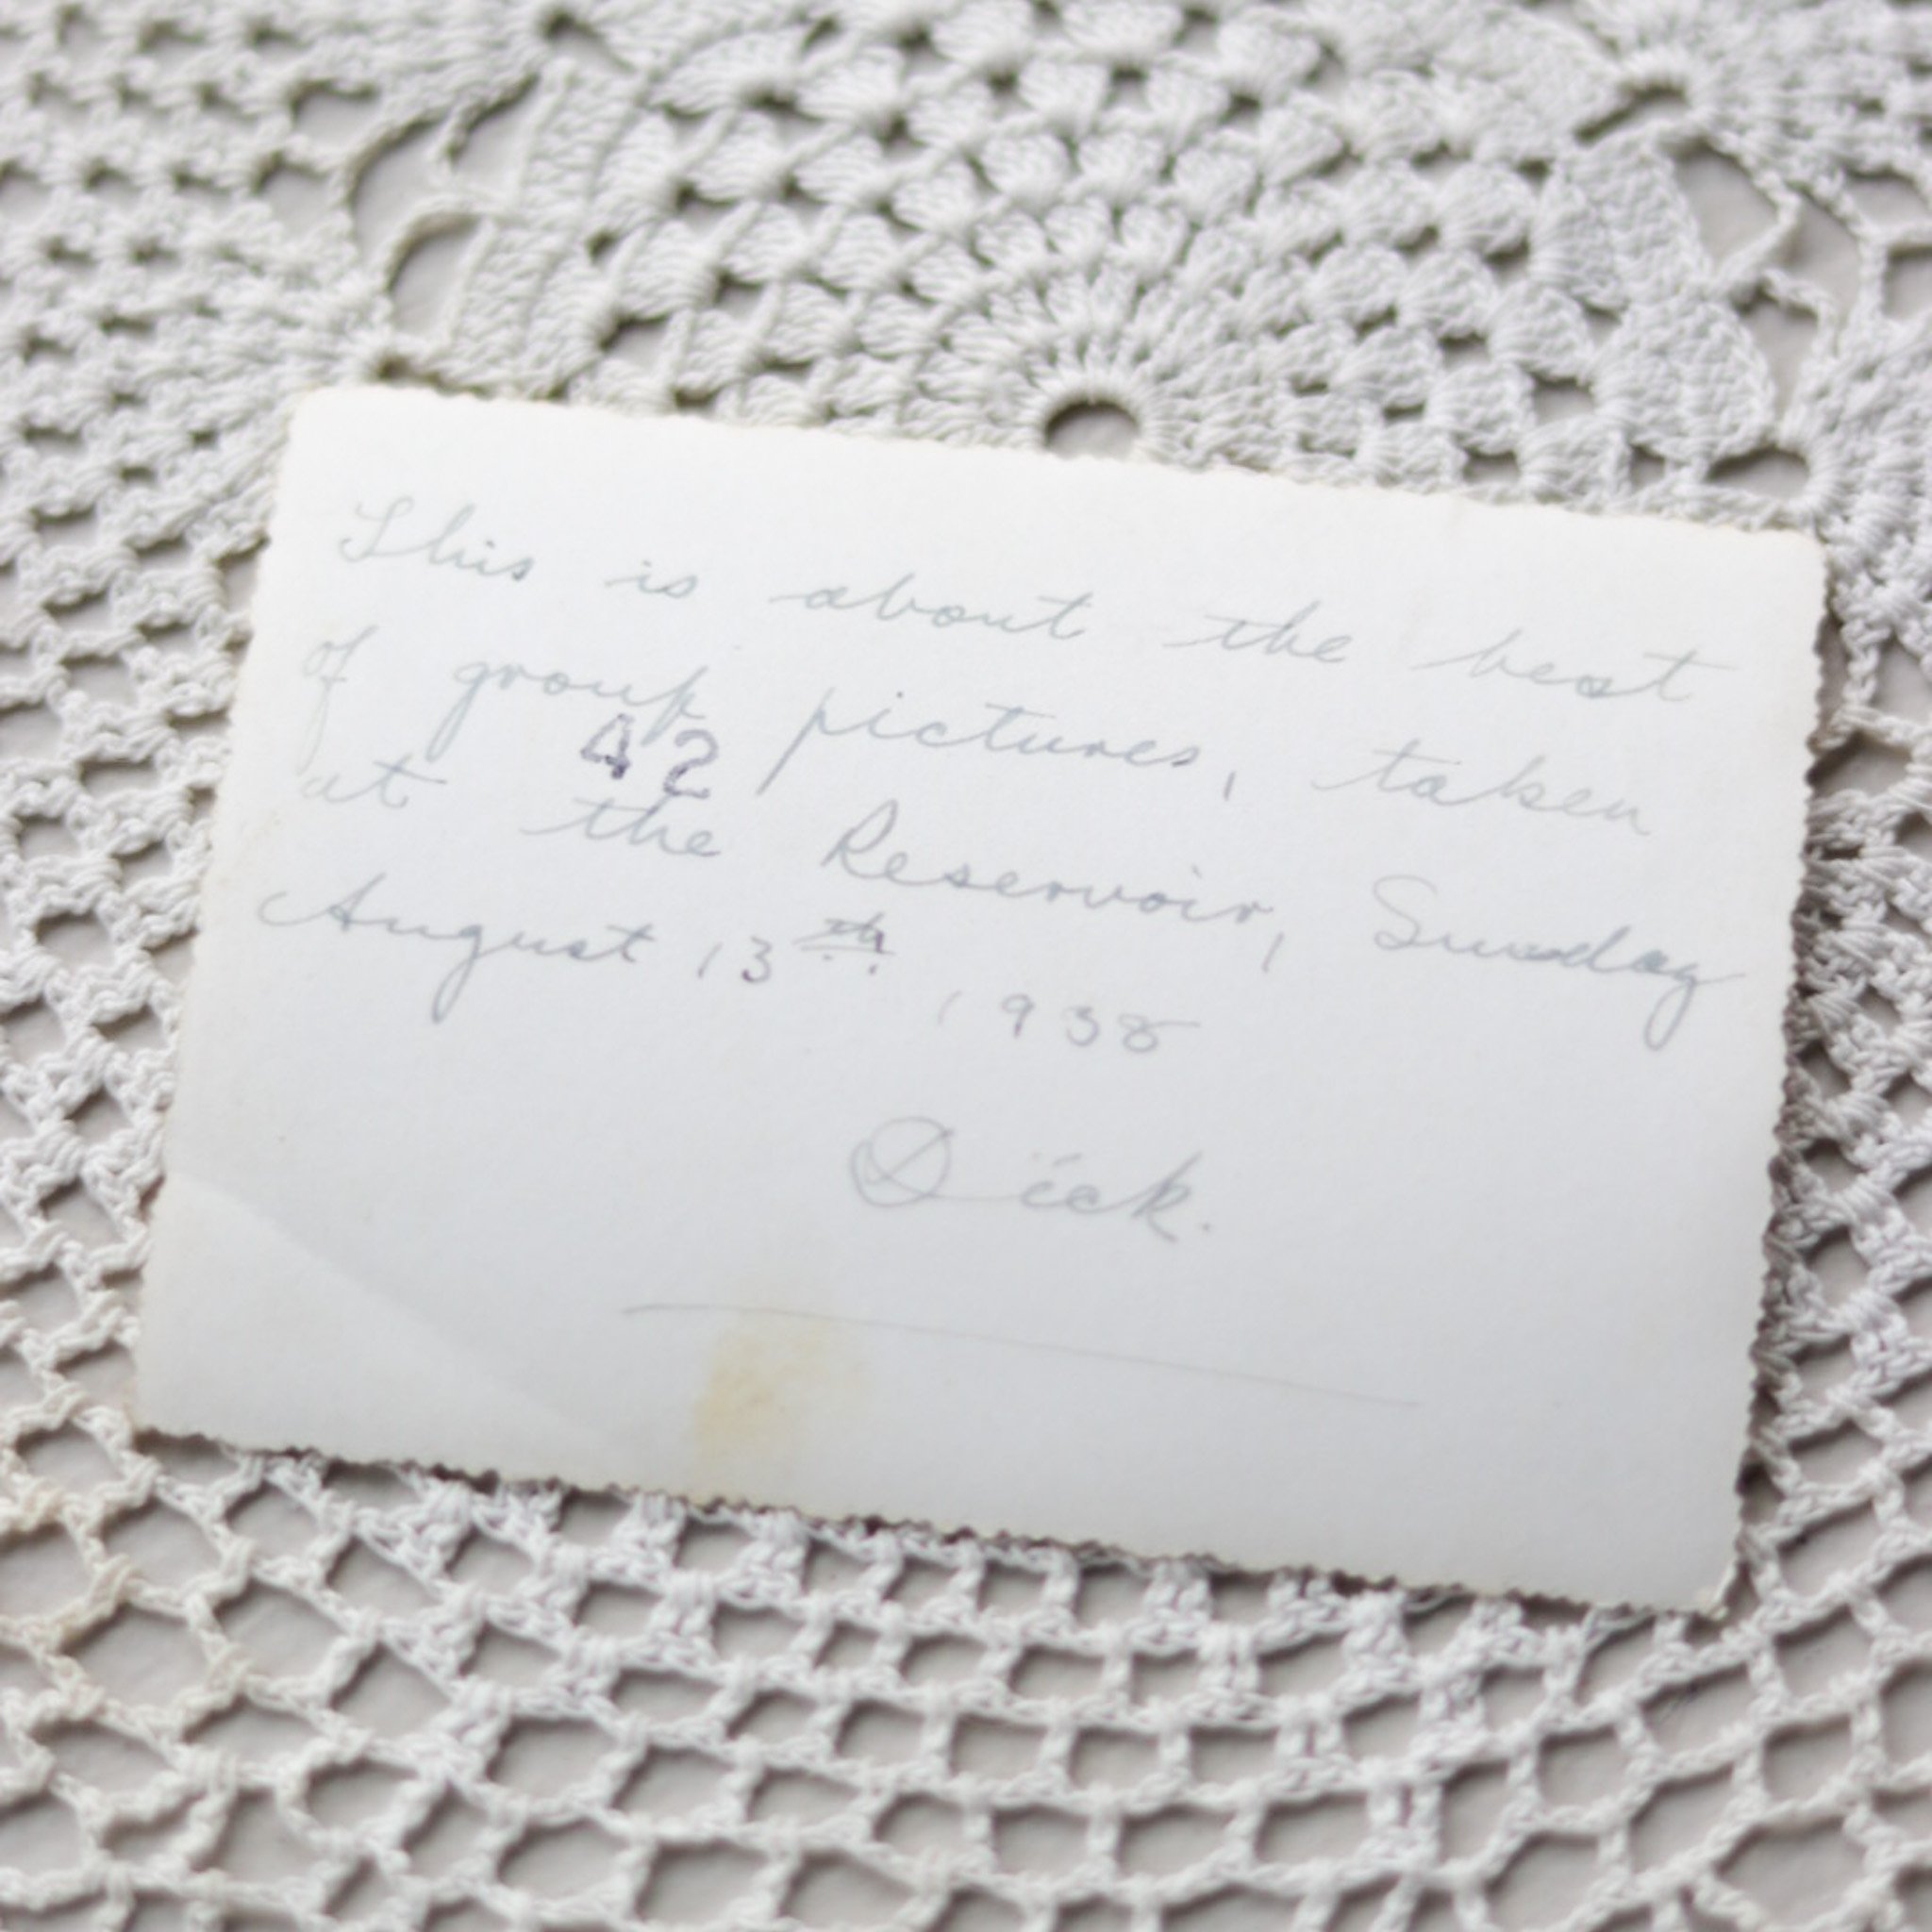 This is about the best
of group pictures, taken
42
at the Reservoir, Sunday
August 13th
1938
Dick.